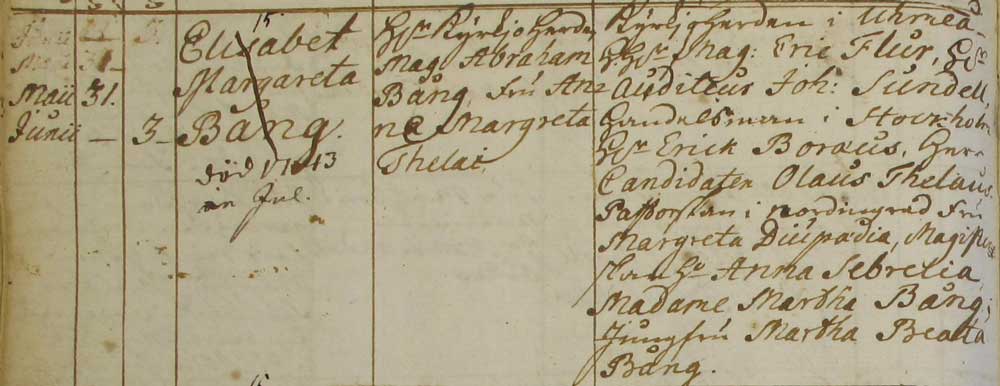 15.
Maii 31.
Junii — 3 —
Elisabet
Margareta
Bång.
död 1743
in Jul.
H:r Kyrkjoherden
Mag. Abraham
Bång, Frú An=
na Margreta
Thelai.
Kyrkjoherden i Uhmeå
H:r Mag: Eric Flur, H:r
Auditeur Joh: Sundell,
Handelsman i Stockholm
H:r Erick Boræus, Herr
Candidaten Olaus Thelaus.
Pastorskan i Nordingråd Frú
Margreta Diúpadia, Magist
skan H:u Anna Sebrelia
Madame Martha Bång;
Jungfrú Martha Beata
Bång.